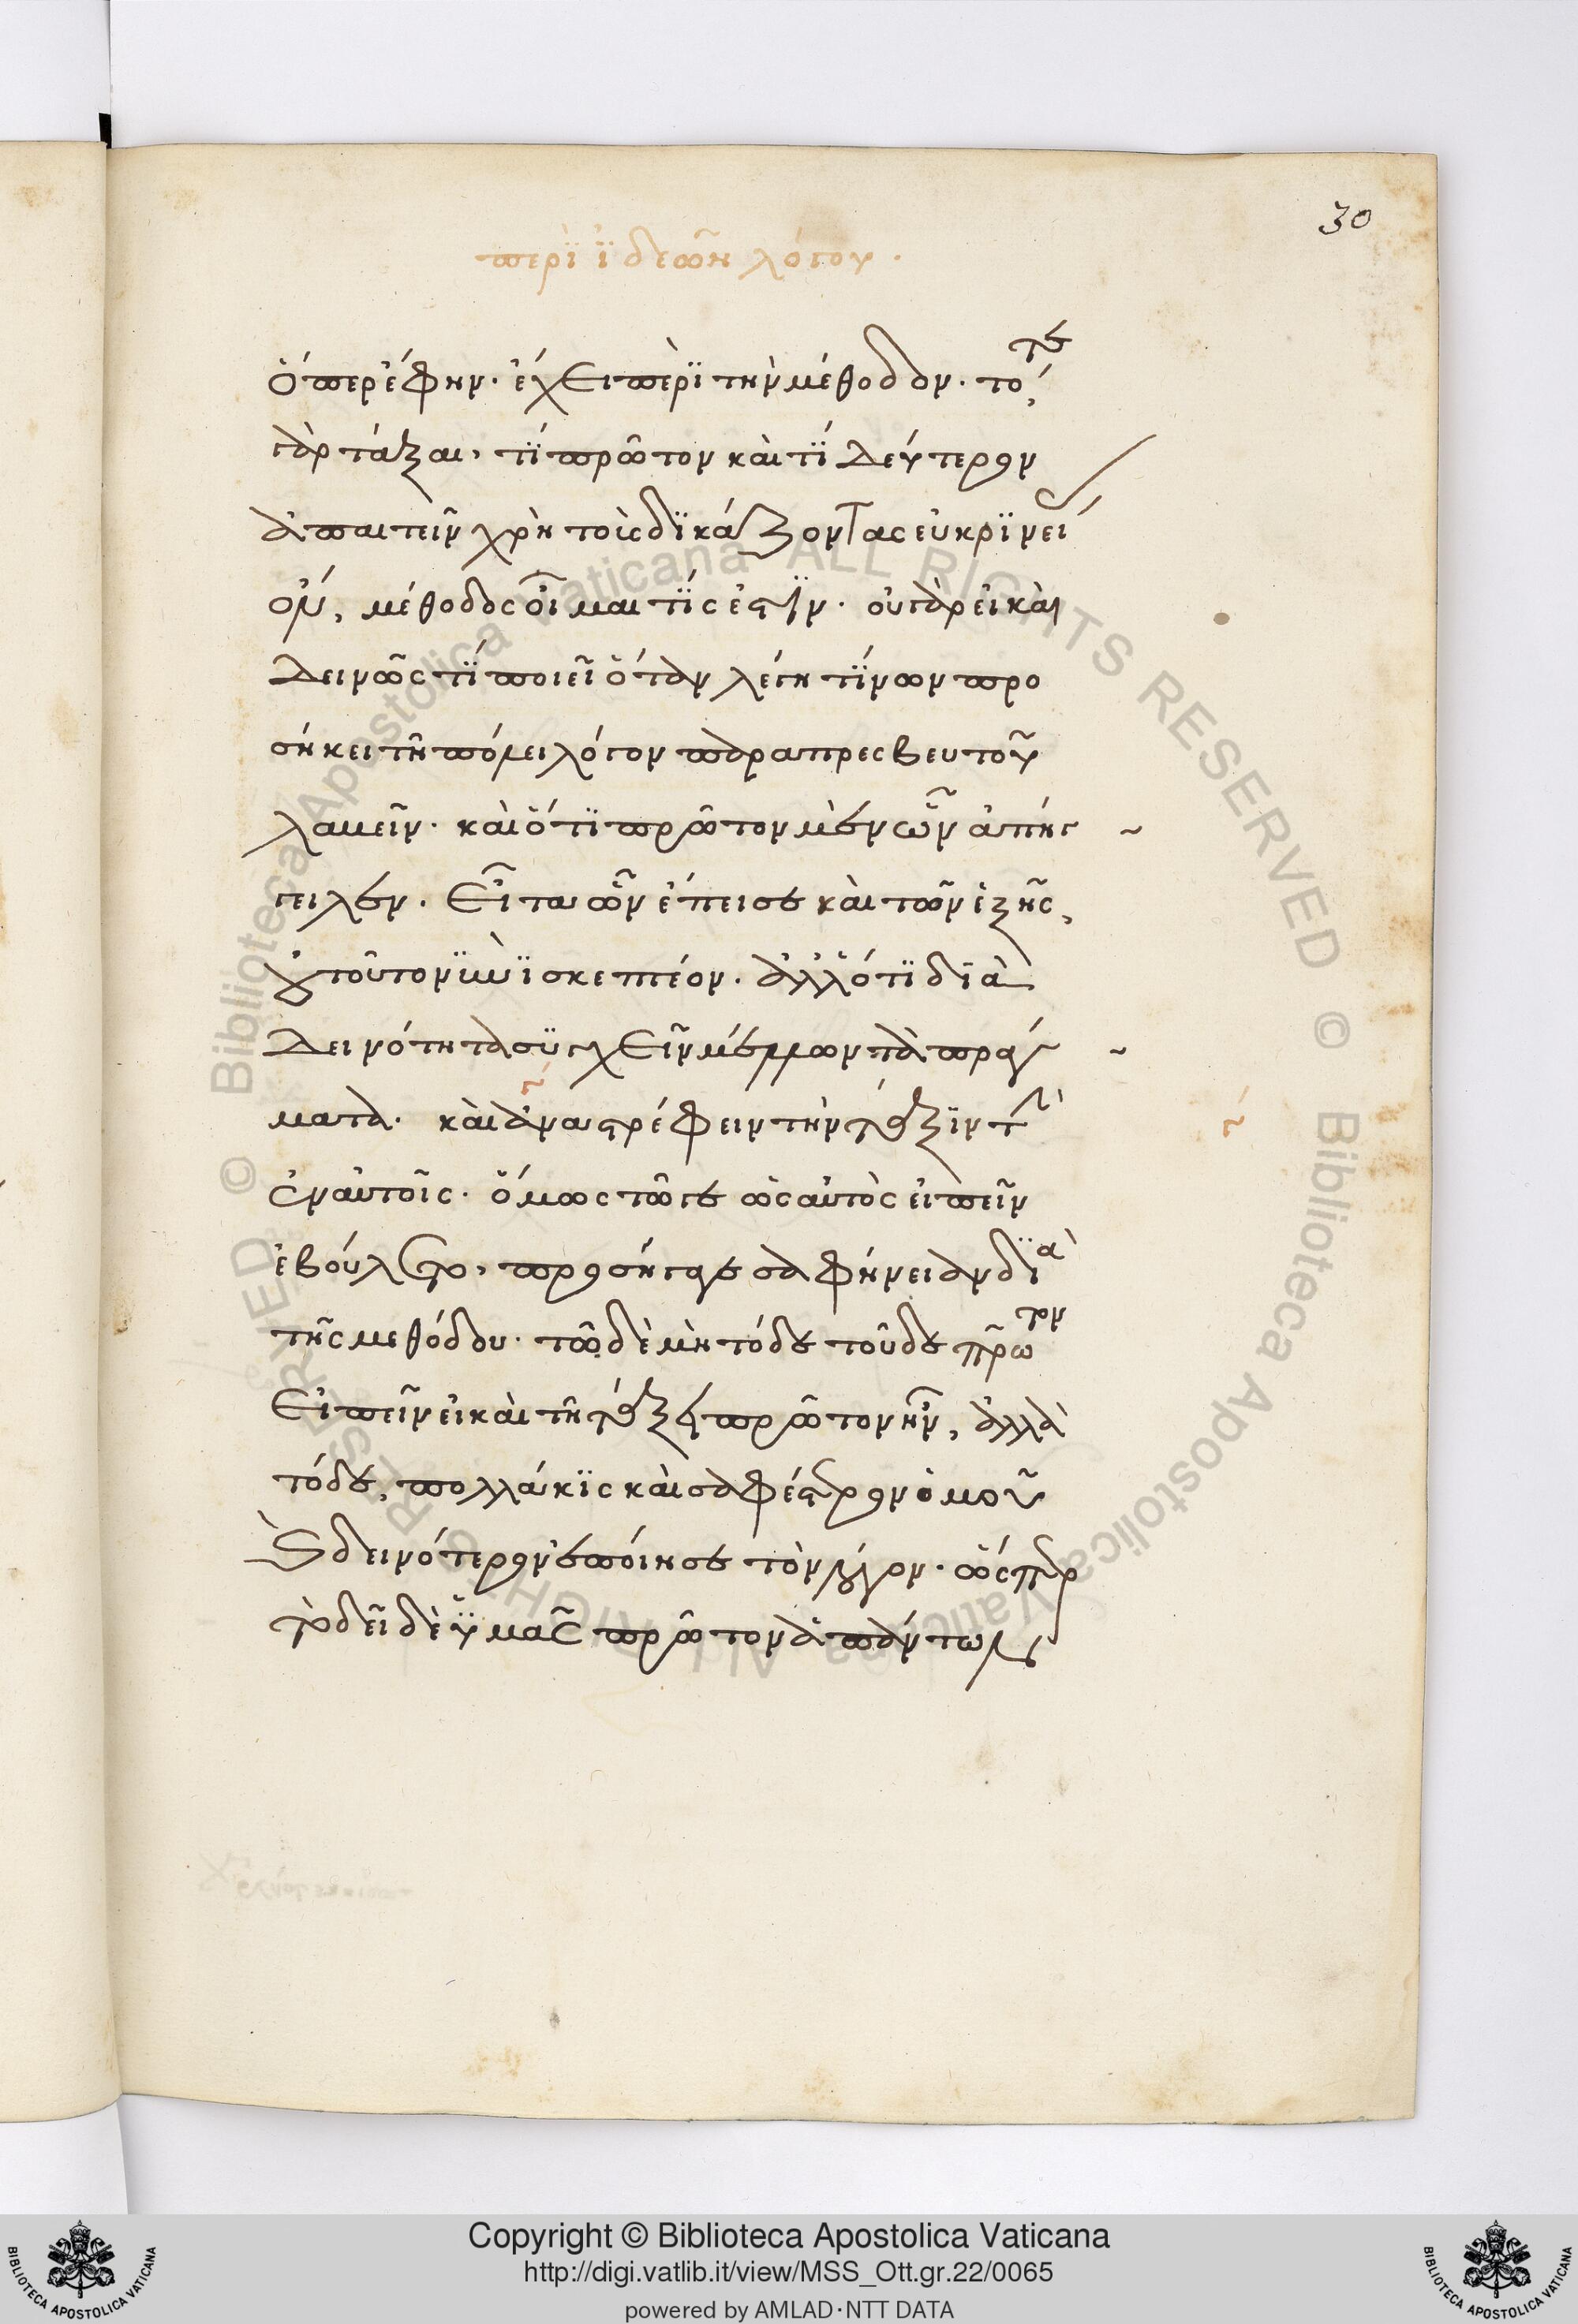 30
περὶ ἰδεῶν λόγου.
ὅπερ ἔφην. ἔχει περὶ τὴν μέθοδον. τό τε
γὰρ τάξαι, τί πρῶτον καὶ τί δεύτερον
ἀπαιτεῖν χρὴ τοὺς δικάζοντας εὐκρινεί
ον, μέθοδος οἶμαι τίς ἐστιν. οὐ γὰρ εἰ καὶ
δεινῶς τί ποιεῖ ὅταν λέγη τίνων προ
σήκει τῆ πόλει λόγον παρὰ πρεσβευτοῦ
λαβεῖν. καὶ ὅτι πρῶτον μὲν ὧν ἀπήγ
γειλεν. εἶτα ὧν ἔπεισε καὶ τῶν ἑξῆς,
οὐ τοῦτο νυνὶ σκεπτέον. ἀλλ' ὅτι διὰ
δεινότητα συγχεῖν μέλλων τὰ πράγ
ματα. καὶ ἀναστρέφειν τὴν τάξιν τὴν
ἐν αὐτοῖς. ὅμως τῶ γε ὡς αὐτὸς εἰπεῖν
ἐβούλετο, προσήγαγε σαφήνειαν διὰ
τῆς μεθόδου. τῶ δὲ μὴ τόδε τοῦδε πρῶτον
εἰπεῖν εἰ καὶ τῆ τάξει πρῶτον ἦν, ἀλλὰ
τόδε, πολλάκις καὶ σαφέστερον ὁμοῦ
καὶ δεινότερον ἐποίησε τὸν λόγον. ὥσπερ
τὸ δεῖ δὲ ὑμᾶς πρῶτον ἁπάντων
Copyright © Biblioteca Apostolica Vaticana
http://digi.vatlib.it/view/MSS_Ott.gr.22/0065
powered by AMLAD·NTT DATA